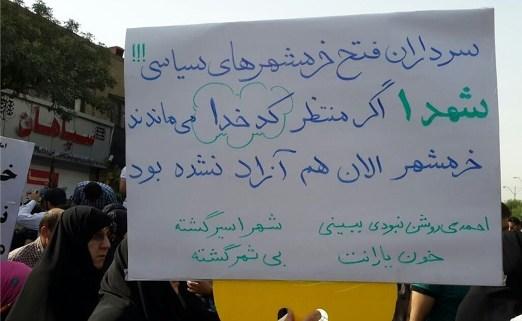 سرداران فتح خرمشهرهای سیاسی !!!
شهدا اگر منتظر کدخدا می‌ماندند
خرمشهر الان هم آزاد نشده بود
احمدی روشن نبودی ببینی
شهر اسیر گشته
خون یارانت
بی ثمر گشته
سپاهان